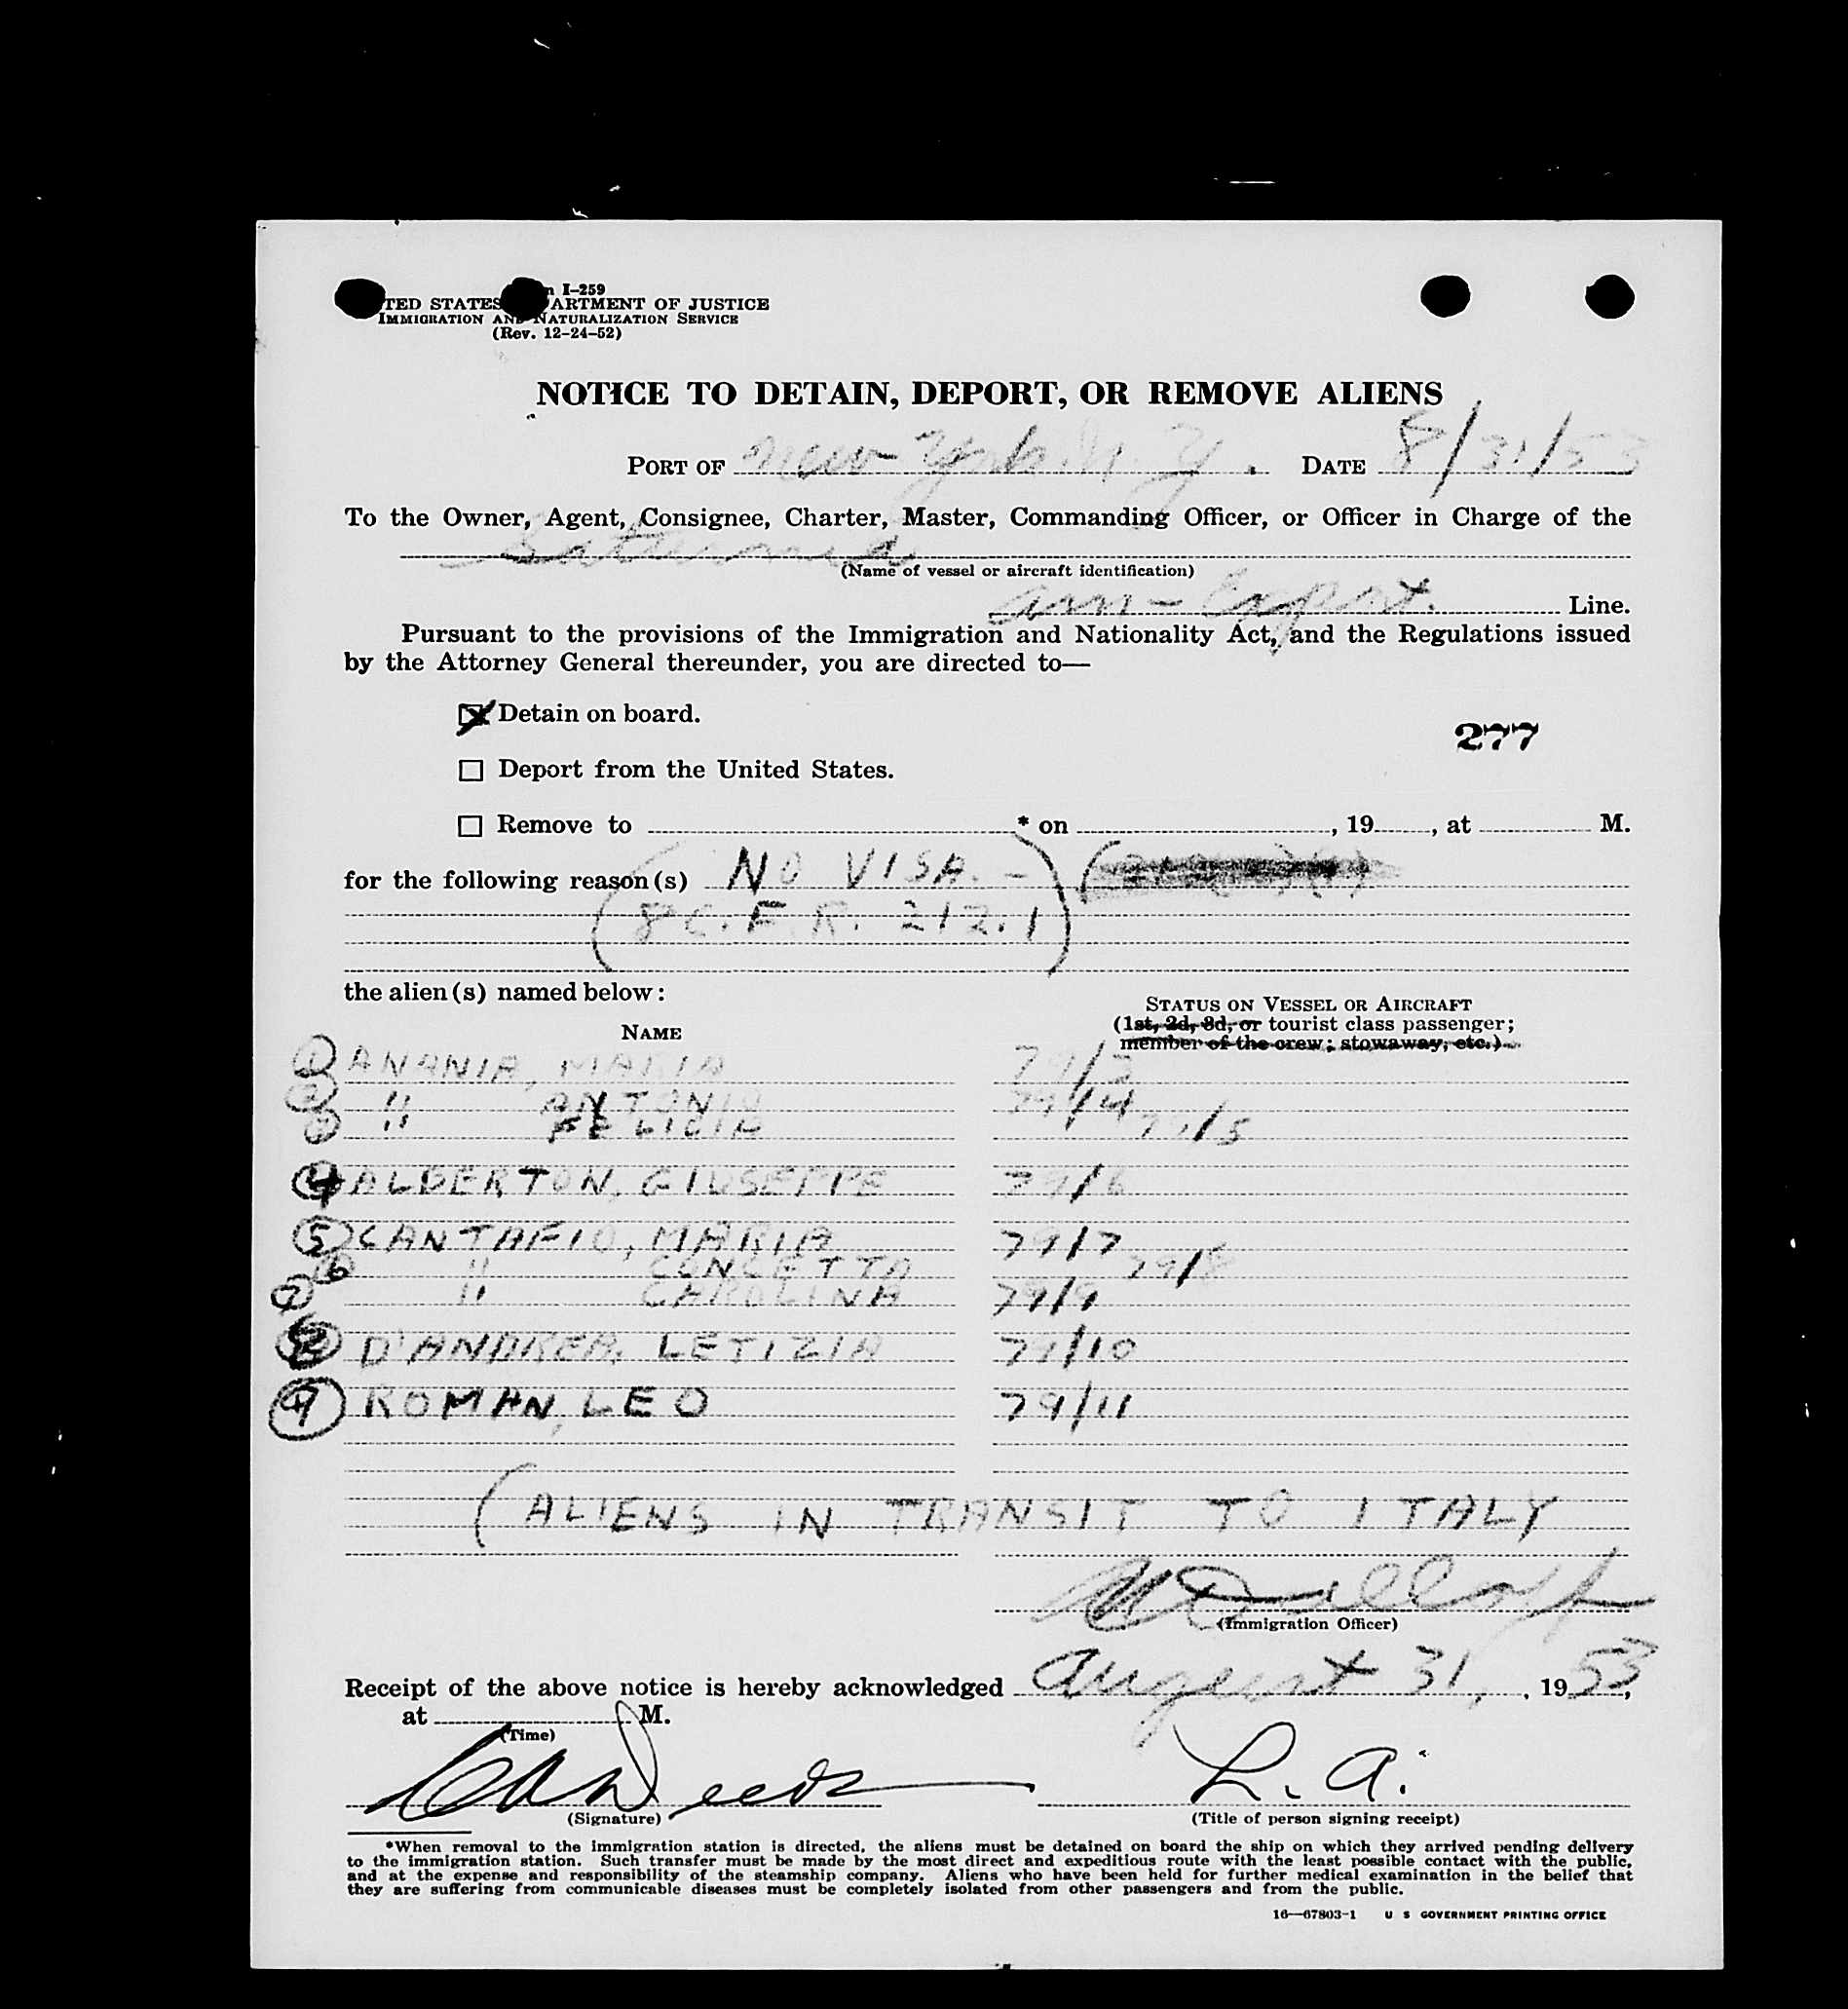 I-259
TED STATES ARTMENT OF JUSTICE
IMMIGRATION AND NATURALIZATION SERVICE
(Rev. 12-24-52)
NOTICE TO DETAIN, DEPORT, OR REMOVE ALIENS
PORT OF New York N. Y. DATE 8/31/53
To the Owner, Agent, Consignee, Charter, Master, Commanding Officer, or Officer in Charge of the
Saturnia
(Name of vessel or aircraft identification)
Am-Export. Line.
Pursuant to the provisions of the Immigration and Nationality Act, and the Regulations issued
by the Attorney General thereunder, you are directed to—
Detain on board.
277
Deport from the United States.
Remove to * on , 19 , at M.
for the following reason(s) NO VISA. -
(8 C.F.R. 212.1)
the alien(s) named below:
STATUS ON VESSEL OR AIRCRAFT
(1st, 2d, 3d, or tourist class passenger;
member of the crew; stowaway, etc.)
NAME
1 ANANIA, MARIA 79/3
2 " ANTONIA 79/4
3 " FELICIA 79/5
4 ALBERTON, GIUSEPPE 79/6
5 CANTAFIO, MARIA 79/7
6 " CONCETTA 79/8
7 " CAROLINA 79/9
8 D'ANDREA, LETIZIA 79/10
9 ROMAN, LEO 79/11
(ALIENS IN TRANSIT TO ITALY
(Immigration Officer)
Receipt of the above notice is hereby acknowledged August 31, , 1953,
at M.
(Time)
L. A.
(Signature) (Title of person signing receipt)
*When removal to the immigration station is directed, the aliens must be detained on board the ship on which they arrived pending delivery
to the immigration station. Such transfer must be made by the most direct and expeditious route with the least possible contact with the public,
and at the expense and responsibility of the steamship company. Aliens who have been held for further medical examination in the belief that
they are suffering from communicable diseases must be completely isolated from other passengers and from the public.
16—67803-1 U S GOVERNMENT PRINTING OFFICE